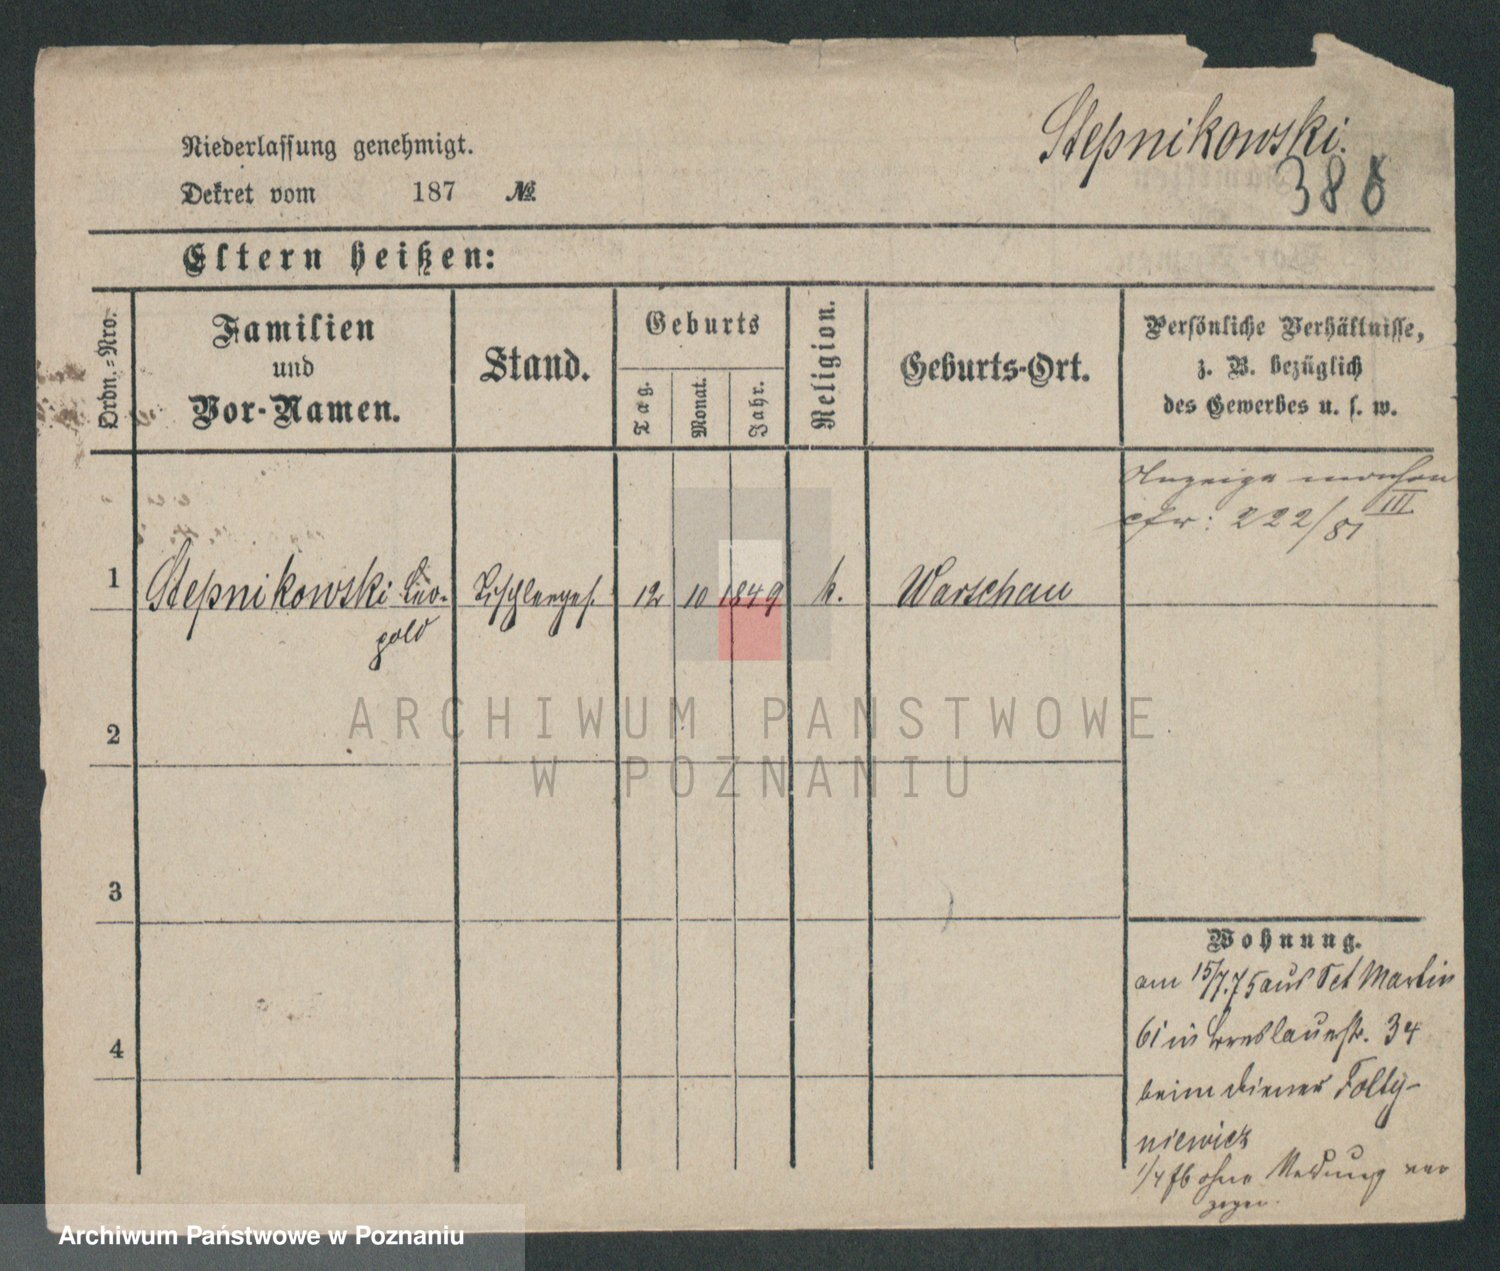 Stepnikowski.
388
Niederlassung genehmigt.
Dekret vom 187 №
Eltern heißen:
Ordn.=Nro.
Familien
und
Vor-Namen.
Stand.
Geburts
Tag.
Monat.
Jahr.
Religion.
Geburts-Ort.
Persönliche Verhältnisse,
z. B. bezüglich
des Gewerbes u. s. w.
Anzeige machen
cfr: 222/81 III
1 Stepnikowski Leo- Tischlerges. 12 10 1849 k. Warschau
pold
2
3
4
Wohnung.
am 15/7.75 aus Sct Martin
61 in Breslauerstr. 34
beim Diener Folty-
niewicz
1/4 76 ohne Meldung ver
zogen.
ARCHIWUM PAŃSTWOWE
W POZNANIU
Archiwum Państwowe w Poznaniu